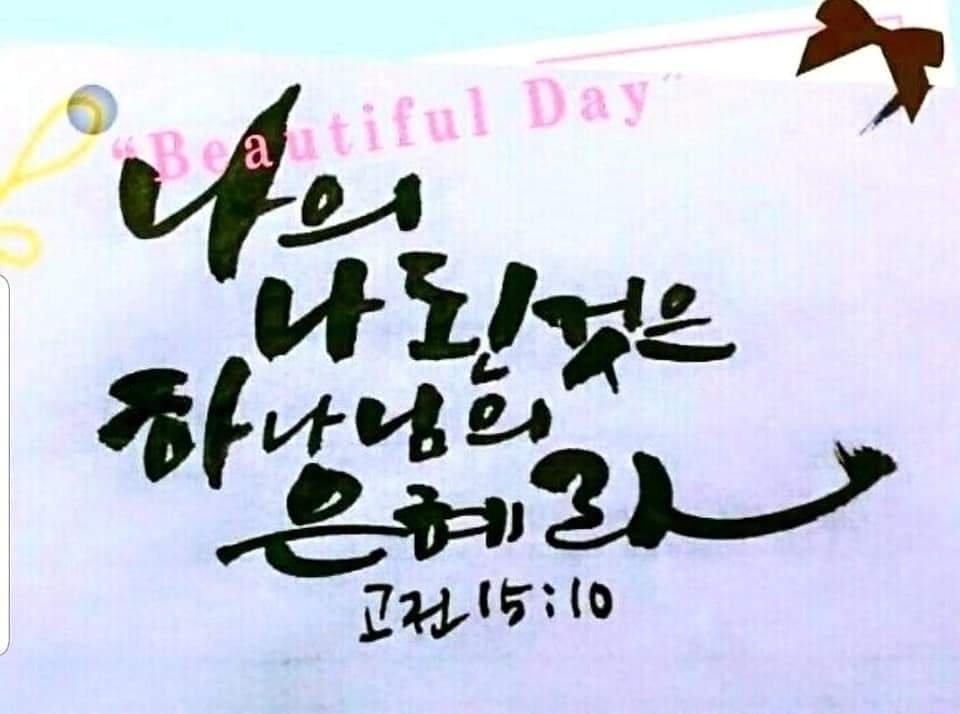 “Beautiful Day”
나의
나 된 것은
하나님의
은혜라
고전 15:10